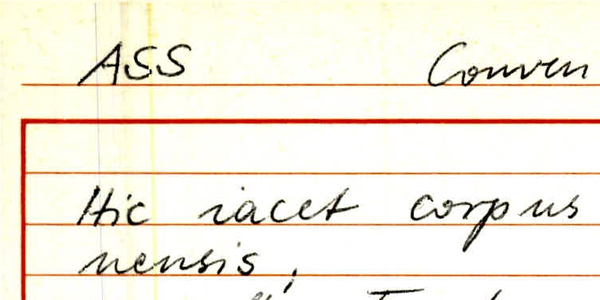 ASS Conven
Hic iacet corpus
nensis,